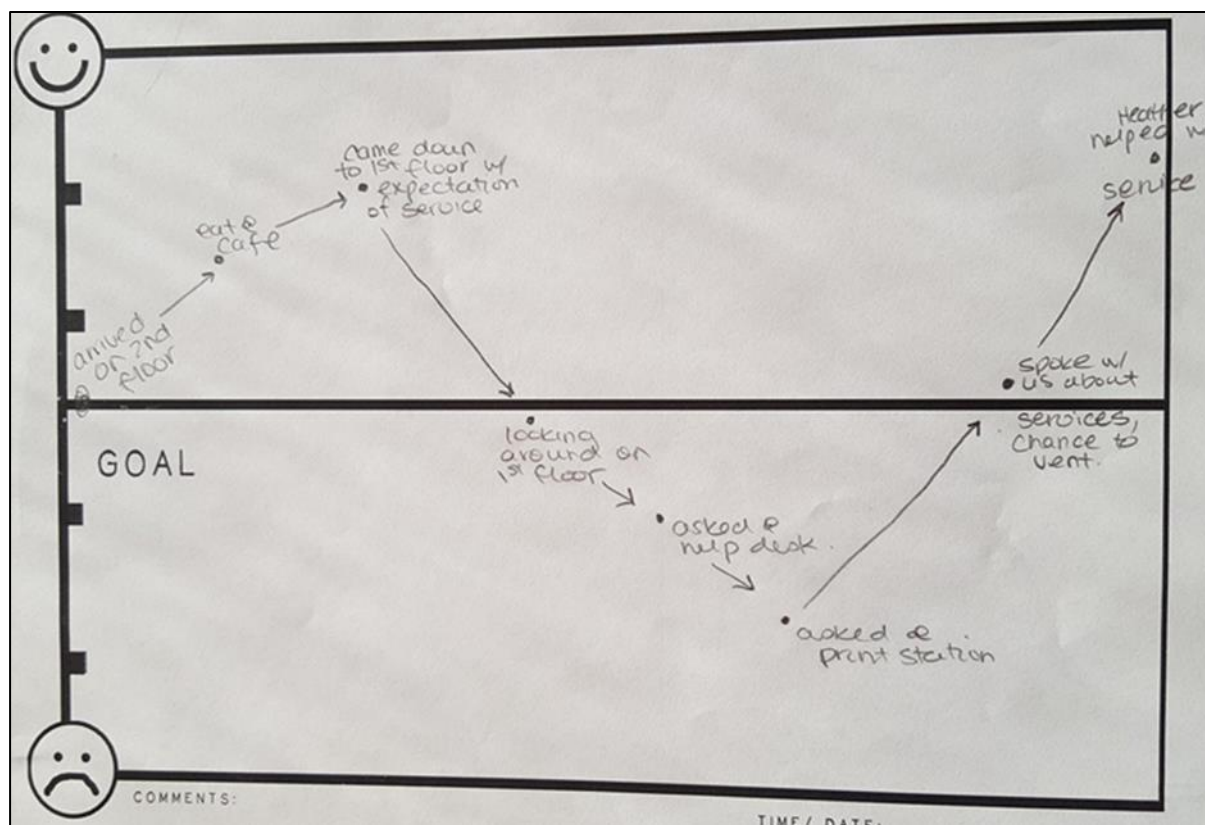 arrived
on 2nd
floor
eat @
cafe
came down
to 1st floor w/
expectation
of service
GOAL
looking
around on
1st floor
asked @
help desk.
asked @
print station
spoke w/
us about
services,
chance to
vent.
Heather
helped w
service
COMMENTS:
TIME/ DATE: